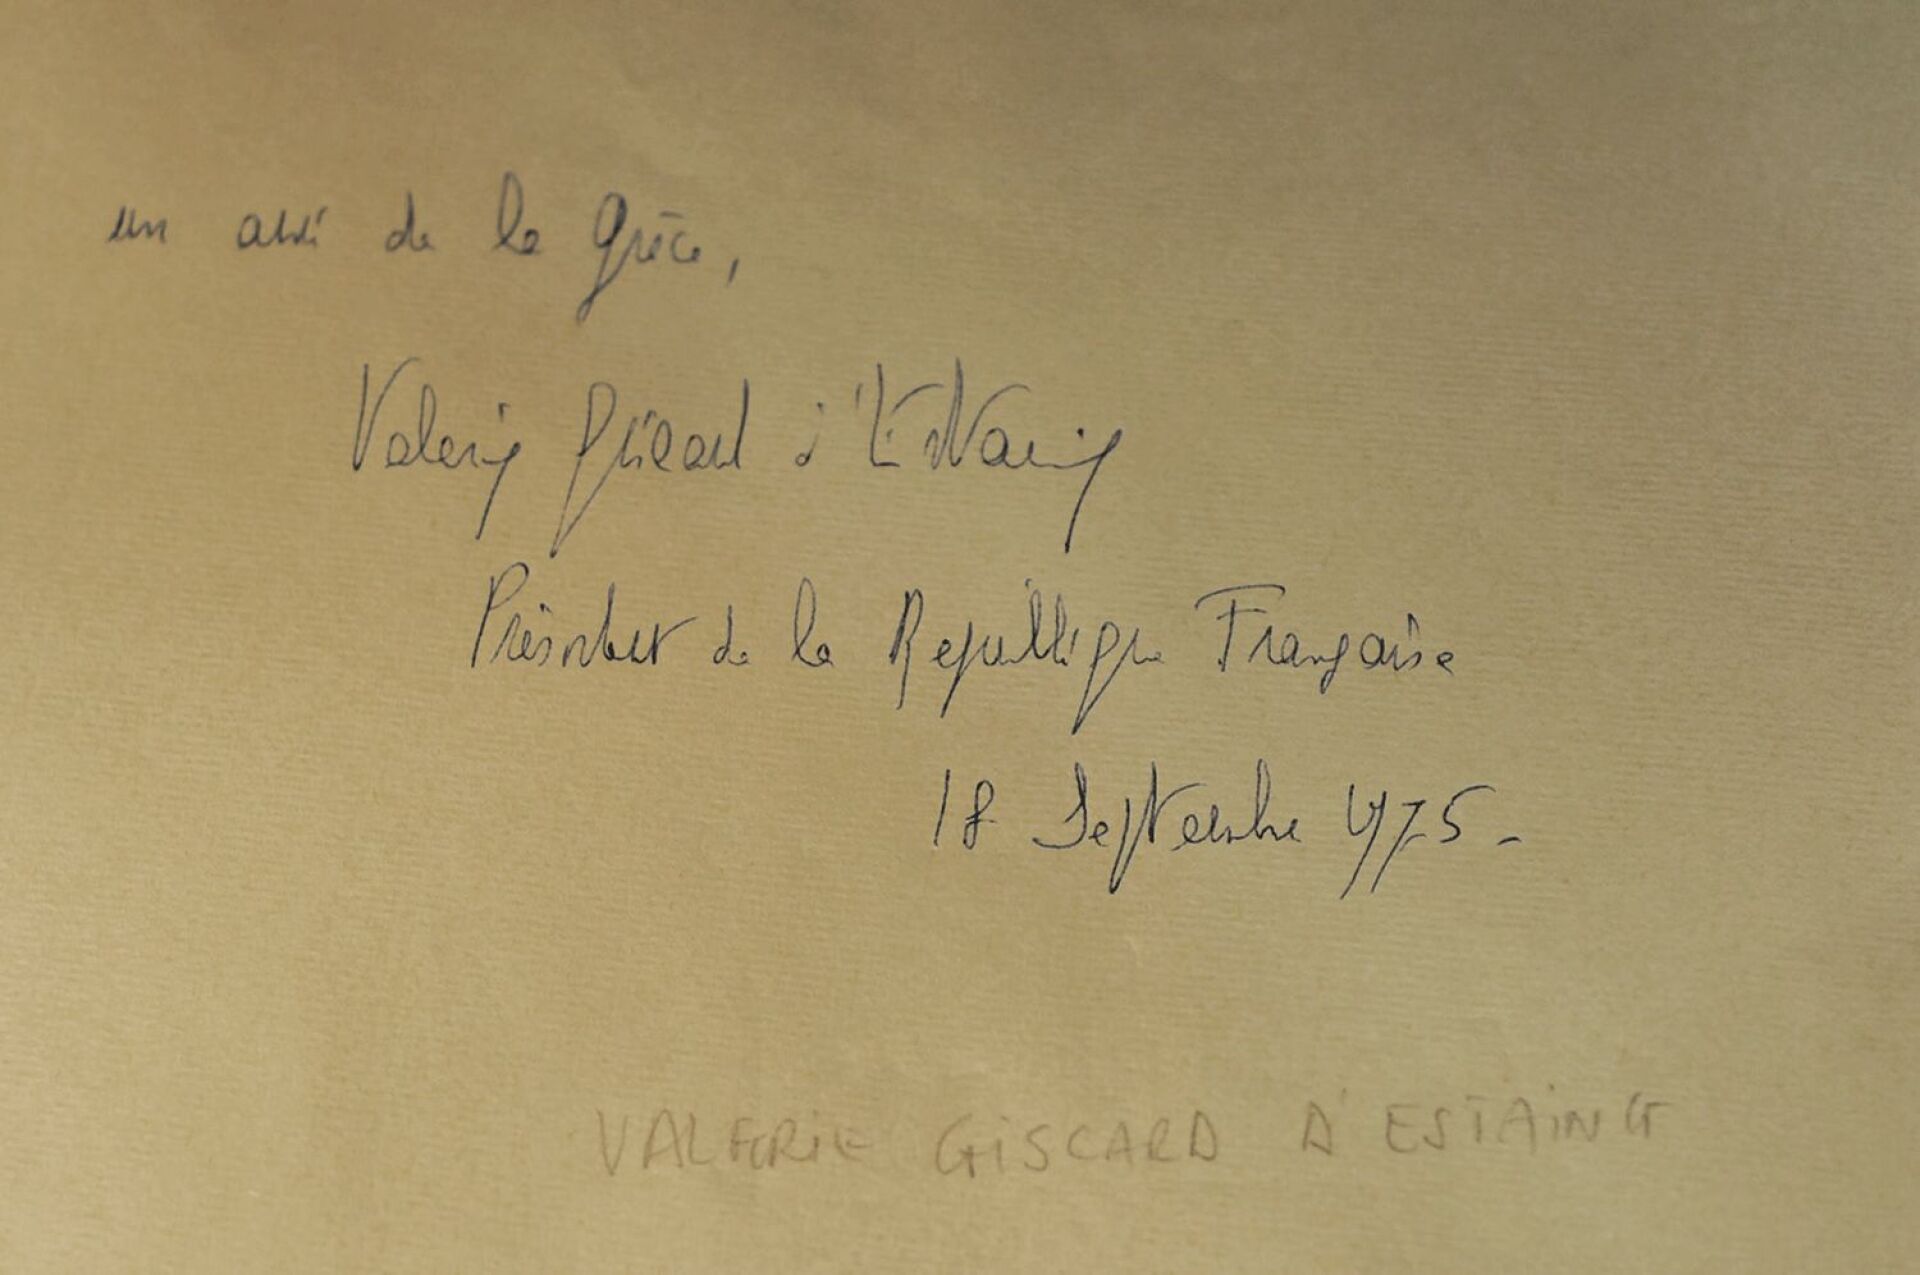 un ami de la Grèce,
Valéry Giscard d'Estaing
Président de la République Française
18 Septembre 1975-
VALERIE GISCARD D'ESTAING